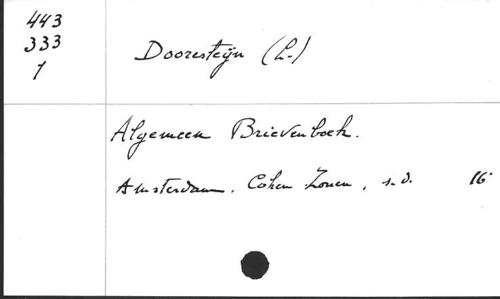 443
333
1
Dooresteijn (L.)
Algemeen Brievenboek.
Amsterdam. Cohen Zonen, s.d. 16°